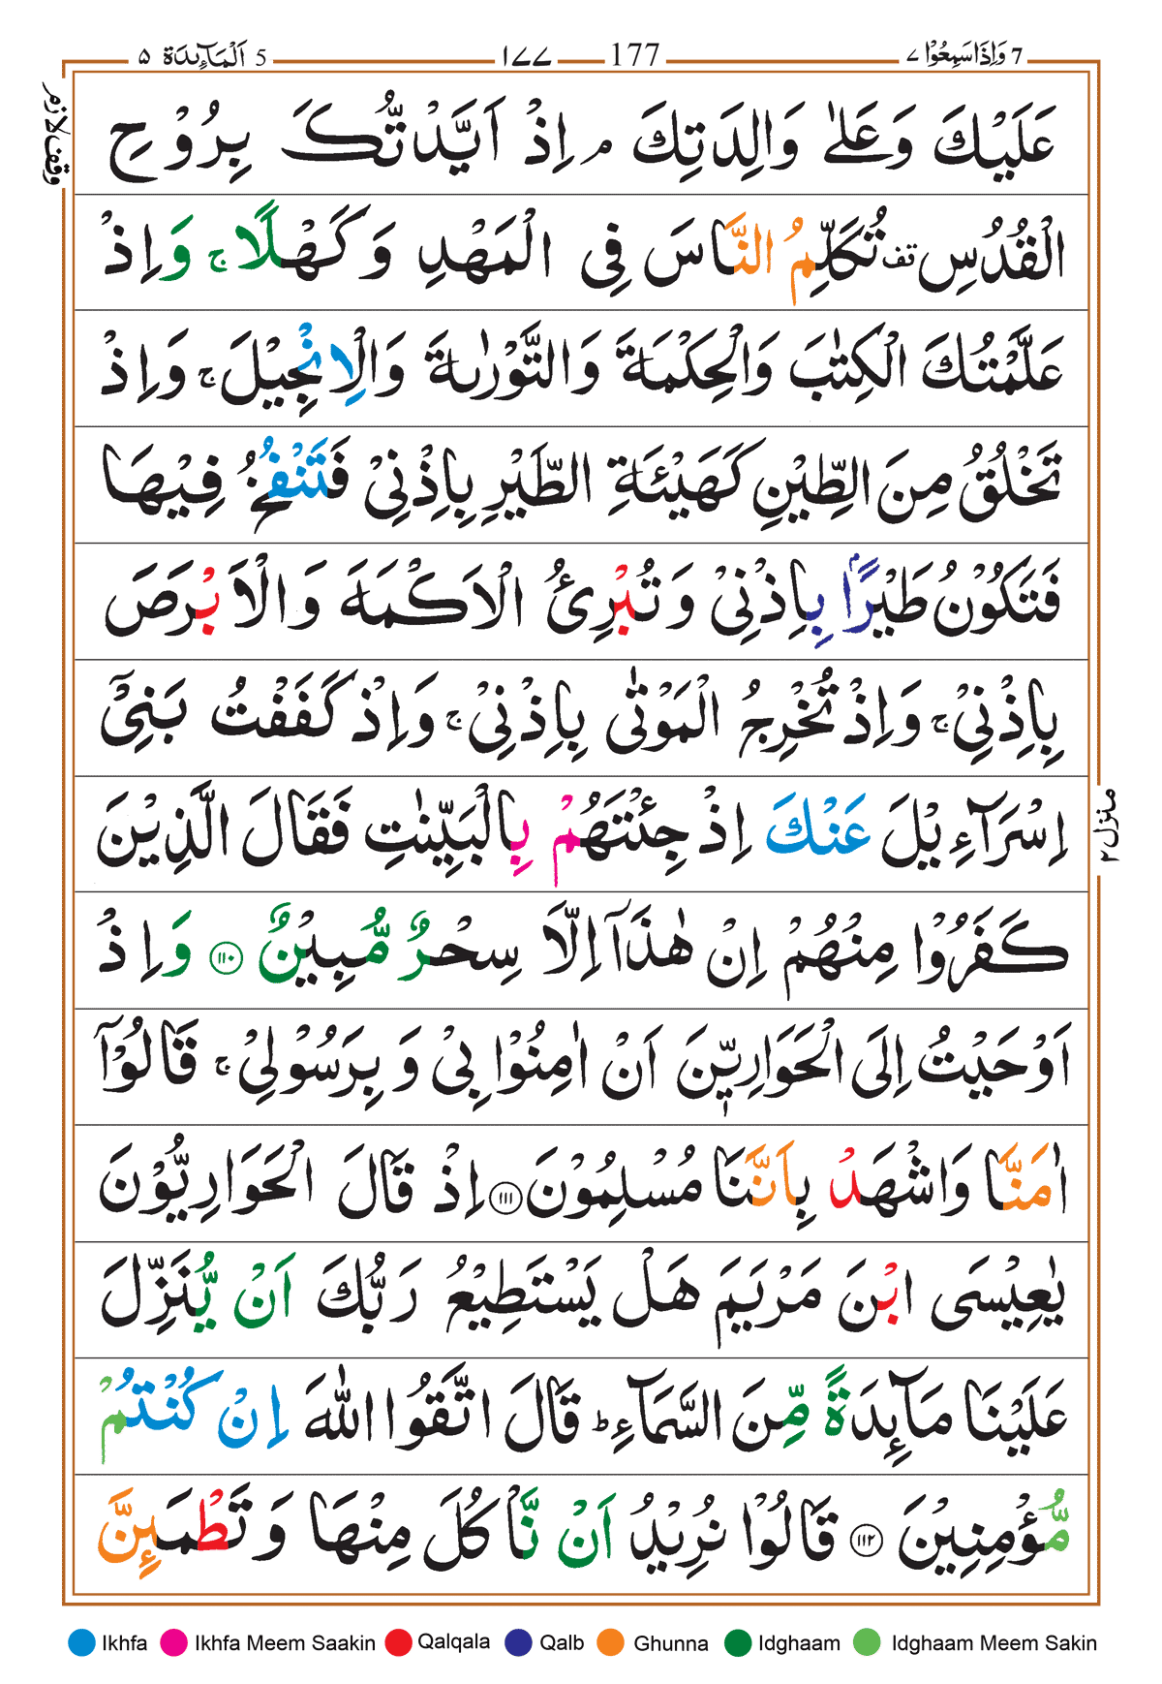 5 اَلْمَآئِدَة ٥
١٧٧ 177
7 وَاِذَا سَمِعُوْا ٧
وقف لازم
عَلَيْكَ وَعَلٰى وَالِدَتِكَ ۘ اِذْ اَيَّدْتُّكَ بِرُوْحِ
الْقُدُسِ تف تُكَلِّمُ النَّاسَ فِى الْمَهْدِ وَكَهْلًا ۚ وَاِذْ
عَلَّمْتُكَ الْكِتٰبَ وَالْحِكْمَةَ وَالتَّوْرٰىةَ وَالْاِنْجِيْلَ ۚ وَاِذْ
تَخْلُقُ مِنَ الطِّيْنِ كَهَيْئَةِ الطَّيْرِ بِاِذْنِىْ فَتَنْفُخُ فِيْهَا
فَتَكُوْنُ طَيْرًاۢ بِاِذْنِىْ وَتُبْرِئُ الْاَكْمَهَ وَالْاَبْرَصَ
بِاِذْنِىْ ۚ وَاِذْ تُخْرِجُ الْمَوْتٰى بِاِذْنِىْ ۚ وَاِذْ كَفَفْتُ بَنِىْٓ
اِسْرَآءِيْلَ عَنْكَ اِذْ جِئْتَهُمْ بِالْبَيِّنٰتِ فَقَالَ الَّذِيْنَ
كَفَرُوْا مِنْهُمْ اِنْ هٰذَآ اِلَّا سِحْرٌ مُّبِيْنٌ ١١٠ وَاِذْ
اَوْحَيْتُ اِلَى الْحَوَارِيّٖنَ اَنْ اٰمِنُوْا بِىْ وَبِرَسُوْلِىْ ۚ قَالُوْٓا
اٰمَنَّا وَاشْهَدْ بِاَنَّنَا مُسْلِمُوْنَ ١١١ اِذْ قَالَ الْحَوَارِيُّوْنَ
يٰعِيْسَى ابْنَ مَرْيَمَ هَلْ يَسْتَطِيْعُ رَبُّكَ اَنْ يُّنَزِّلَ
عَلَيْنَا مَآئِدَةً مِّنَ السَّمَآءِ ؕ قَالَ اتَّقُوا اللّٰهَ اِنْ كُنْتُمْ
مُّؤْمِنِيْنَ ١١٢ قَالُوْا نُرِيْدُ اَنْ نَّاْكُلَ مِنْهَا وَتَطْمَئِنَّ
منزل ٢
Ikhfa Ikhfa Meem Saakin Qalqala Qalb Ghunna Idghaam Idghaam Meem Sakin